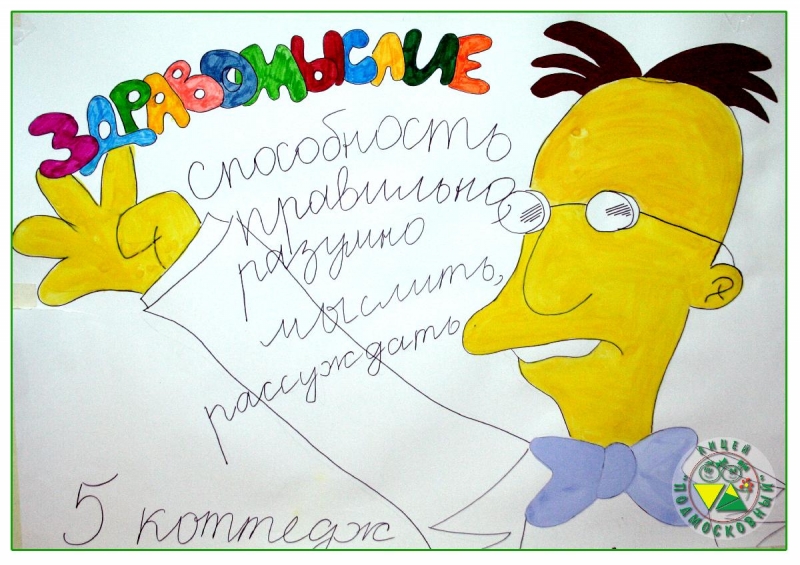 ЗДРАВОМЫСЛИЕ
способность
правильно
разумно
мыслить,
рассуждать
5 коттедж
ЛИЦЕЙ
"ПОДМОСКОВНЫЙ"